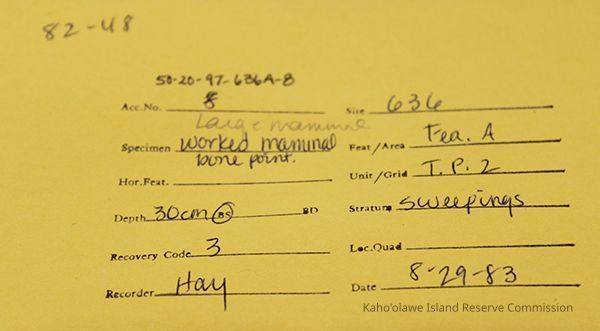 82-48
50-20-97-636A-8
Acc.No. 8 Site 636
Large mammal
Specimen worked mammal bone point. Feat/Area Fea. A
Hor.Feat. Unit/Grid T.P. 2
Depth 30cm BS BD Stratum sweepings
Recovery Code 3 Loc.Quad
Recorder Hay Date 8-29-83
Kaho'olawe Island Reserve Commission